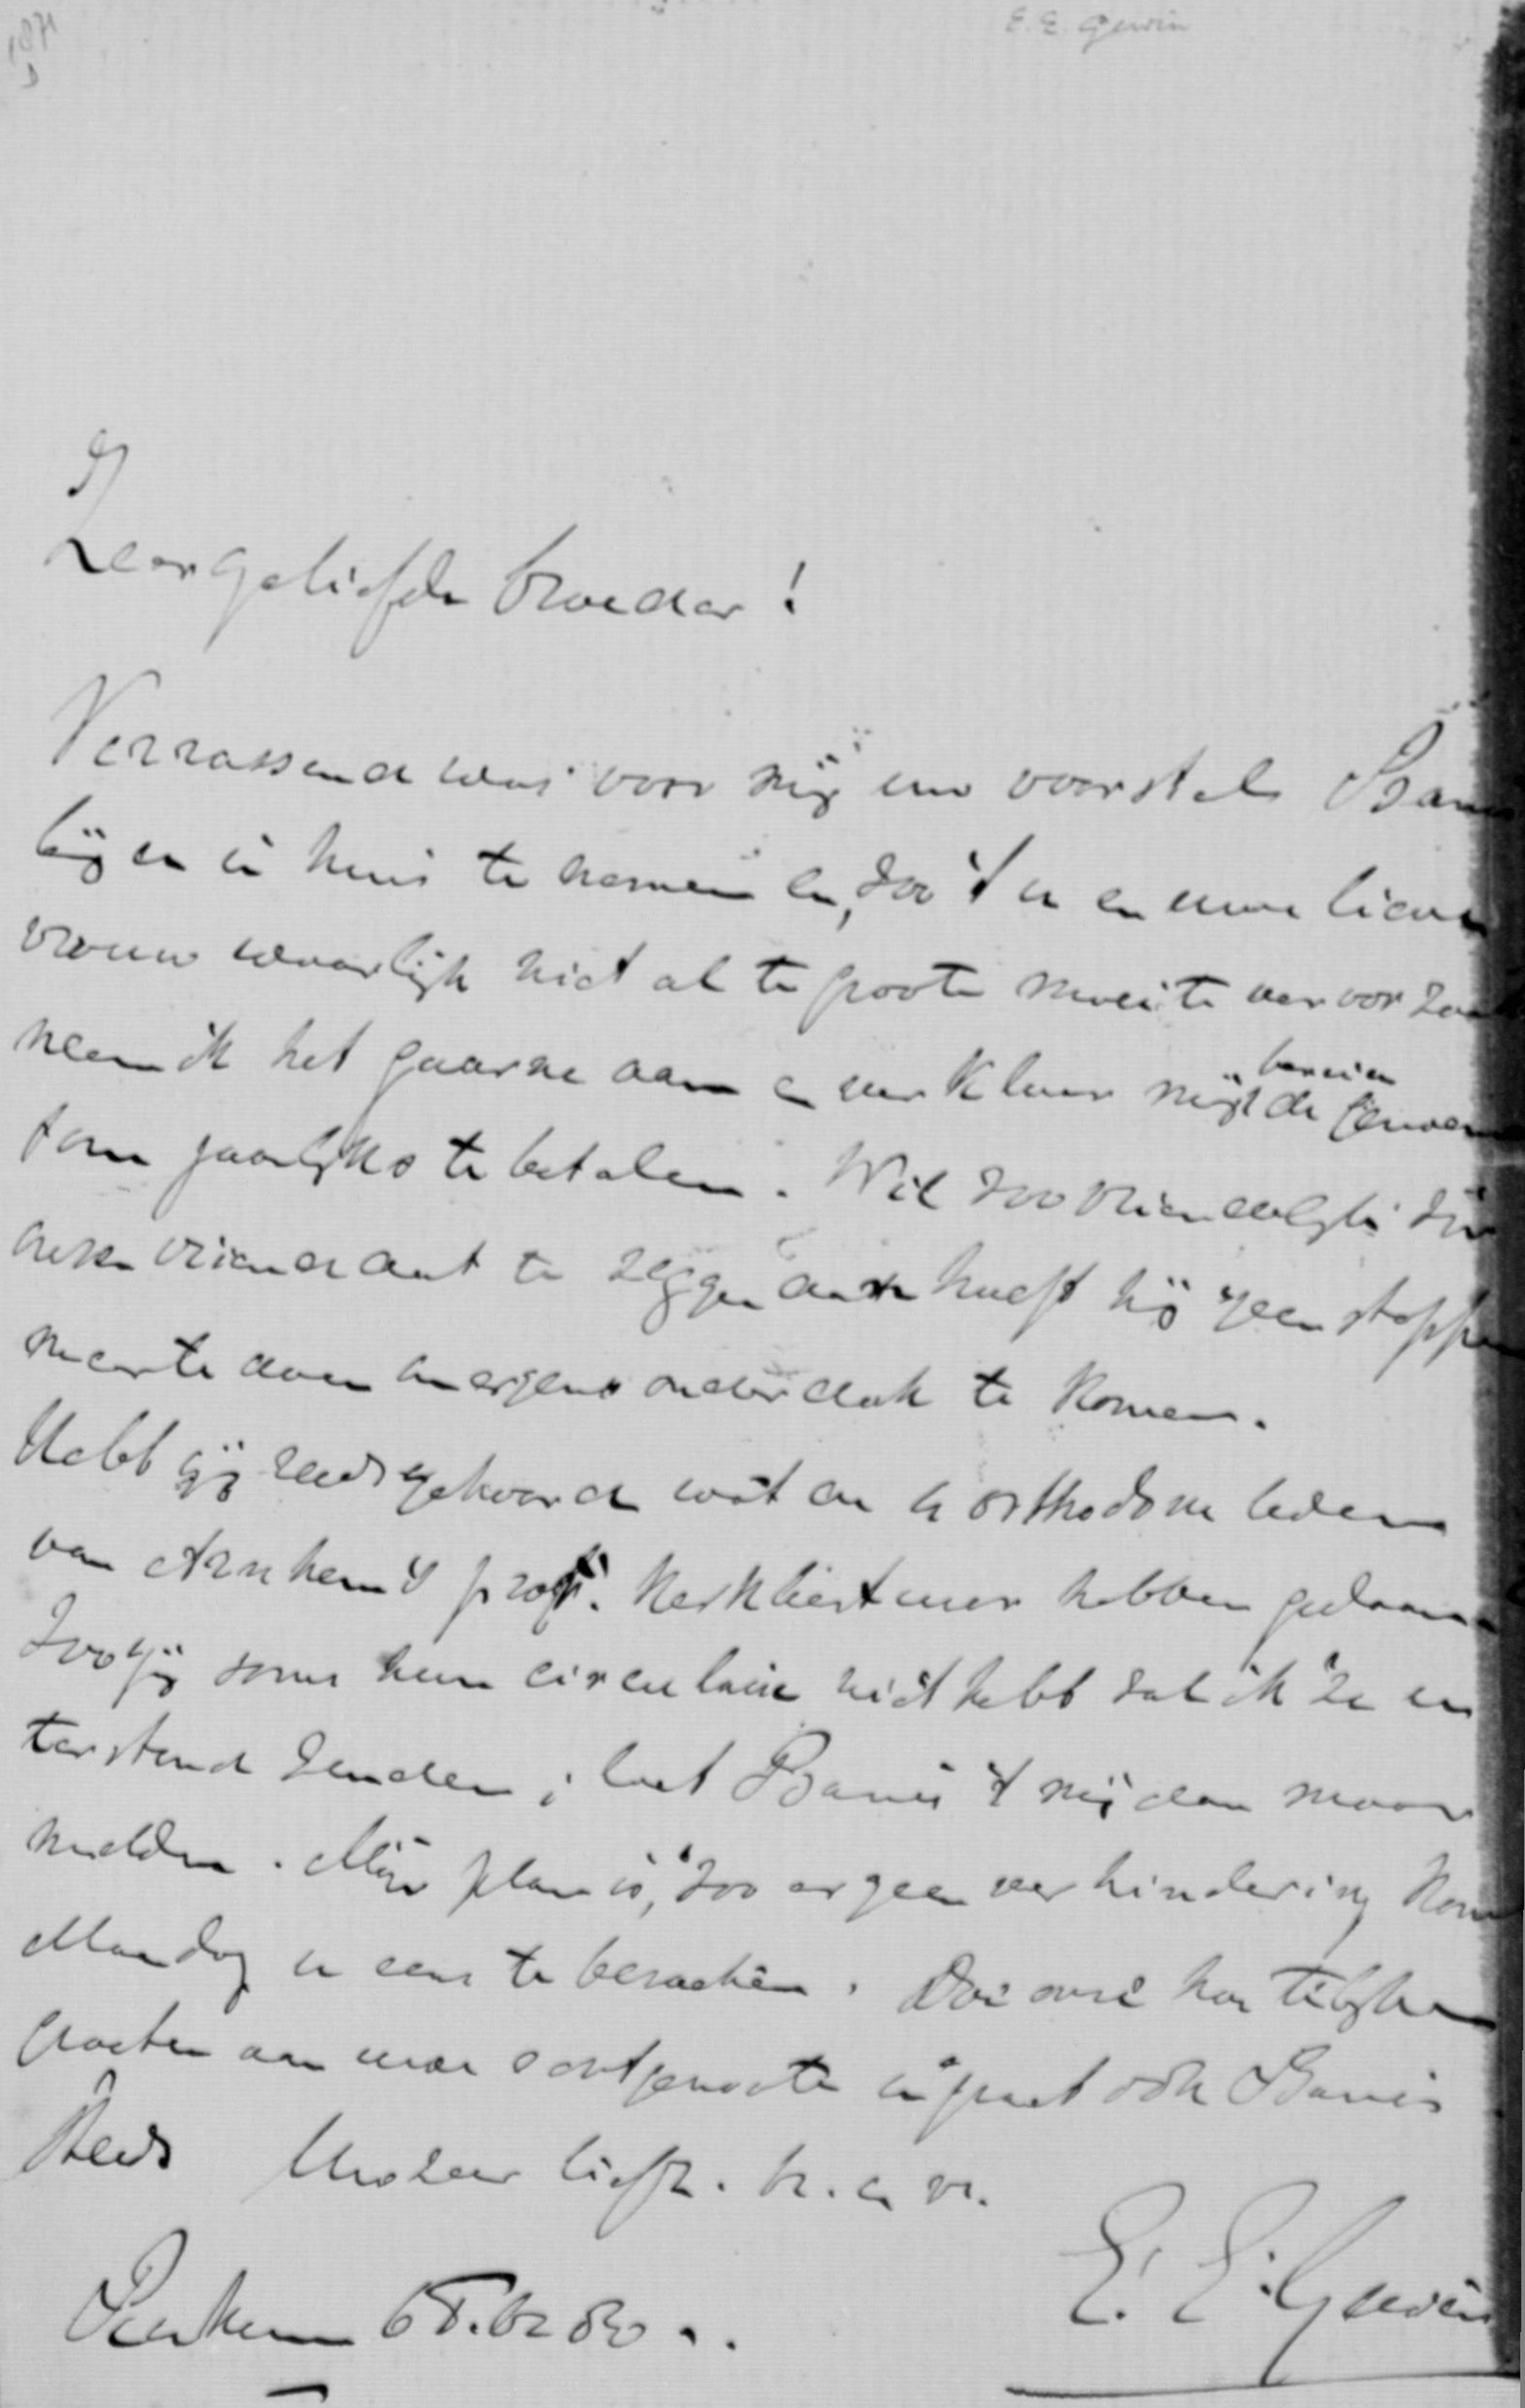 E. E. Gewin
Zeer geliefde broeder!
Verrassend was voor mij uw voorstel
bij u in huis te nemen en, zoo 't u en uwe lieve
vrouw waarlijk niet al te groote moeite veroorzaakt
neem ik het gaarne aan en verklaar mij bereid de genoemde
som jaarlijks te betalen. Wil zoo vriendelijk zijn
dezen vriend dat te zeggen dan hoeft hij geen stappen
meer te doen om ergens onder dak te komen.
Hebt gij reeds gehoord wat de orthodoxe leden
van Arnhem's kerkbestuur hebben gedaan.
Zoo gij soms hun circulaire niet hebt zal ik ze u
terstond zenden; laat 't mij dan maar
melden. Mijn plan is, zoo er geen verhindering komt
Maandag u eens te bezoeken. Doe onze hartelijke
groeten aan uwe echtgenoote en groet ook
Steeds Uw zeer liefh. br. en vr.
E. E. Gewin